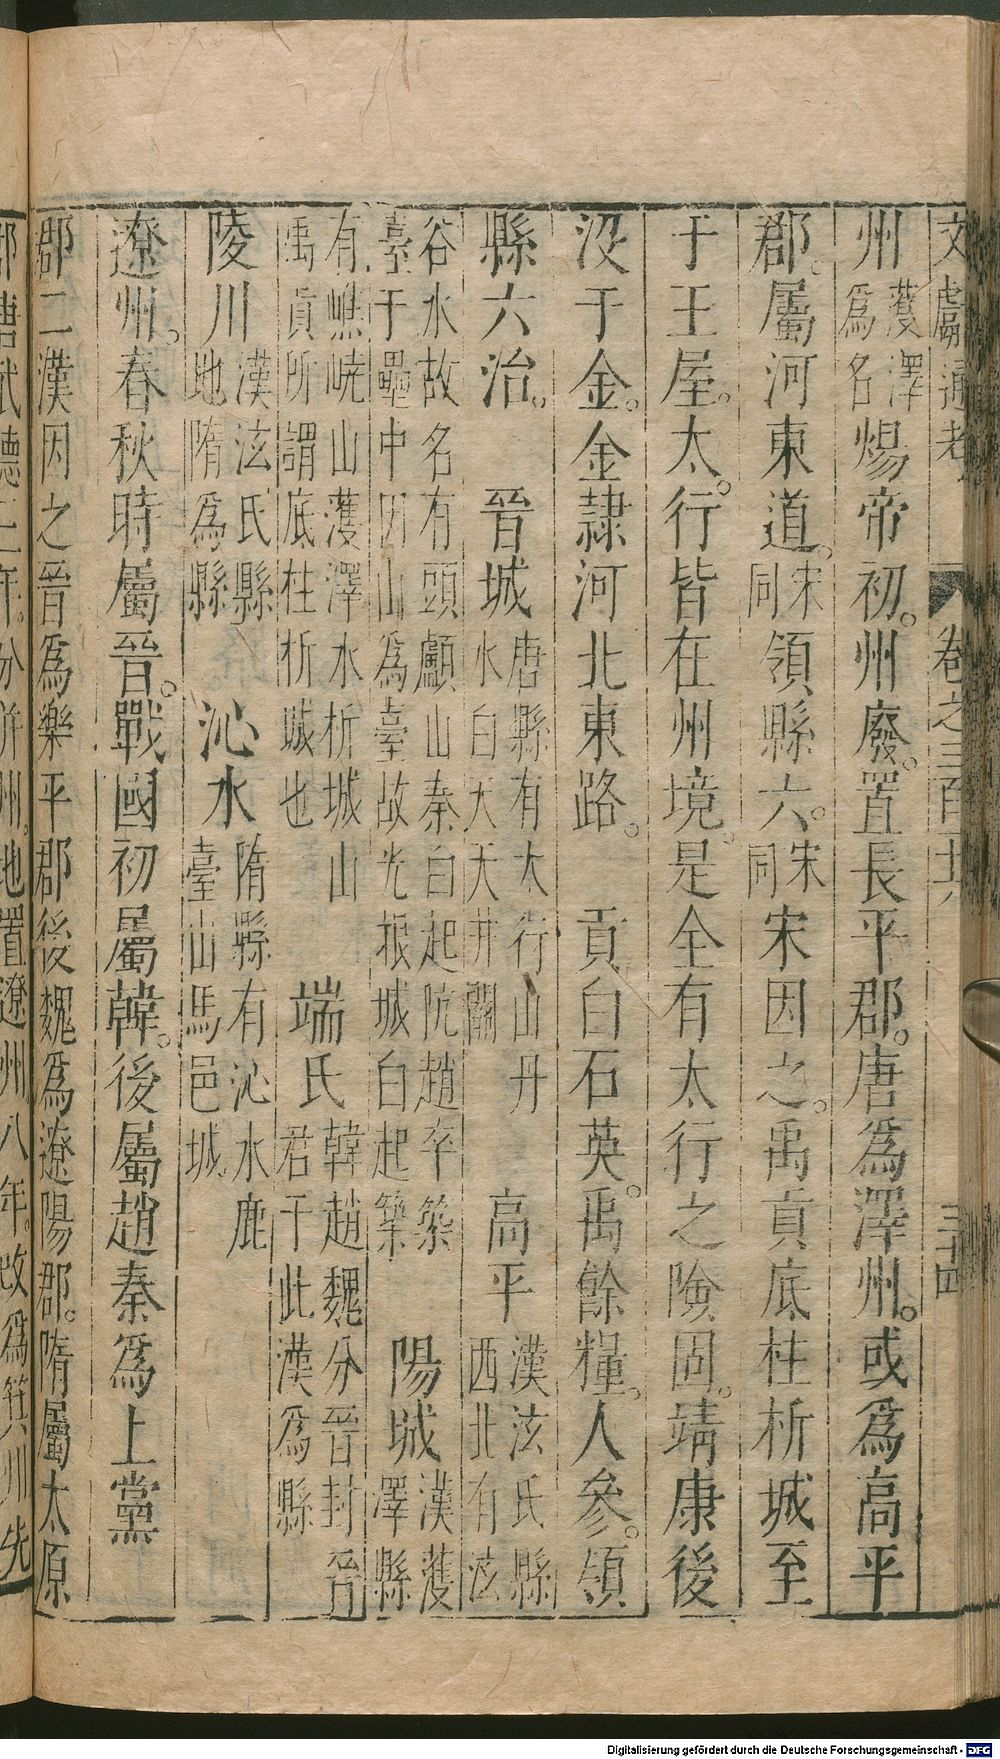 文獻通考 卷之三百十六 三十四
州濩澤爲名煬帝初。州廢。置長平郡。唐爲澤州。或爲高平
郡。屬河東道。宋同領縣六。宋同宋因之。禹貢底柱析城至
于王屋。太行皆在州境。是全有太行之險固。靖康後
没于金。金隸河北東路。 貢白石英。禹餘糧。人參。領
縣六治。 晉城唐縣有太行山丹水白天天井關 高平漢泫氏縣西北有泫
谷水故名有頭顱山秦白起阬趙卒築臺于壘中因山爲臺故光掁城白起築 陽城漢濩澤縣
有嶕嶢山濩澤水析城山禹貢所謂底柱析城也 端氏韓趙魏分晉封晉君于此漢爲縣
陵川漢泫氏縣地隋爲縣 沁水隋縣有沁水鹿臺山馬邑城
遼州。春秋時屬晉。戰國初屬韓。後屬趙秦爲上黨
郡二漢因之晉爲樂平郡後魏爲遼陽郡。隋屬太原
郡唐武德三年。分并州。地置遼州八年。改爲箕州先
Digitalisierung gefördert durch die Deutsche Forschungsgemeinschaft - DFG